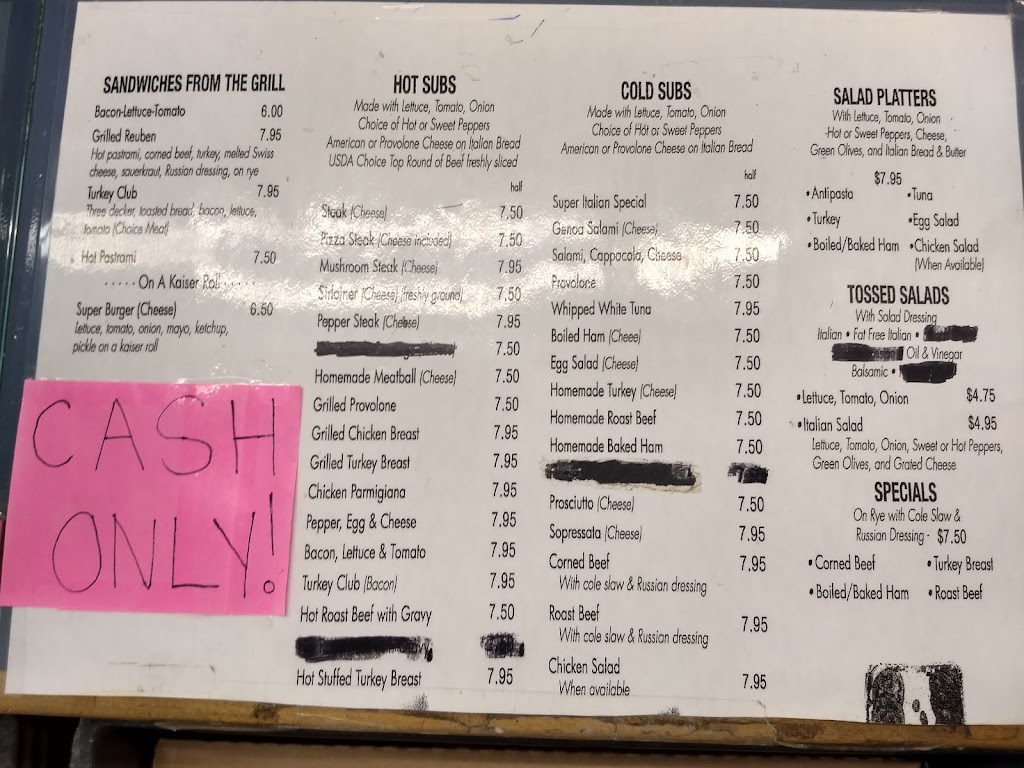 SANDWICHES FROM THE GRILL
Bacon-Lettuce-Tomato 6.00
Grilled Reuben 7.95
Hot pastrami, corned beef, turkey, melted Swiss
cheese, sauerkraut, Russian dressing, on rye
Turkey Club 7.95
Three decker, toasted bread, bacon, lettuce,
tomato (Choice Meat)
Hot Pastrami 7.50
.....On A Kaiser Roll.....
Super Burger (Cheese) 6.50
Lettuce, tomato, onion, mayo, ketchup,
pickle on a kaiser roll
CASH
ONLY!
HOT SUBS
Made with Lettuce, Tomato, Onion
Choice of Hot or Sweet Peppers
American or Provolone Cheese on Italian Bread
USDA Choice Top Round of Beef freshly sliced
half
Steak (Cheese) 7.50
Pizza Steak (Cheese included) 7.50
Mushroom Steak (Cheese) 7.95
Sirloiner (Cheese) (freshly ground) 7.50
Pepper Steak (Cheese) 7.95
7.50
Homemade Meatball (Cheese) 7.50
Grilled Provolone 7.50
Grilled Chicken Breast 7.95
Grilled Turkey Breast 7.95
Chicken Parmigiana 7.95
Pepper, Egg & Cheese 7.95
Bacon, Lettuce & Tomato 7.95
Turkey Club (Bacon) 7.95
Hot Roast Beef with Gravy 7.50
Hot Stuffed Turkey Breast 7.95
COLD SUBS
Made with Lettuce, Tomato, Onion
Choice of Hot or Sweet Peppers
American or Provolone Cheese on Italian Bread
half
Super Italian Special 7.50
Genoa Salami (Cheese) 7.50
Salami, Cappacola, Cheese 7.50
Provolone 7.50
Whipped White Tuna 7.95
Boiled Ham (Cheee) 7.50
Egg Salad (Cheese) 7.50
Homemade Turkey (Cheese) 7.50
Homemade Roast Beef 7.50
Homemade Baked Ham 7.50
Prosciutto (Cheese) 7.50
Sopressata (Cheese) 7.95
Corned Beef 7.95
With cole slaw & Russian dressing
Roast Beef 7.95
With cole slaw & Russian dressing
Chicken Salad 7.95
When available
SALAD PLATTERS
With Lettuce, Tomato, Onion
Hot or Sweet Peppers, Cheese,
Green Olives, and Italian Bread & Butter
$7.95
•Antipasta •Tuna
•Turkey •Egg Salad
•Boiled/Baked Ham •Chicken Salad
(When Available)
TOSSED SALADS
With Salad Dressing
Italian • Fat Free Italian •
Oil & Vinegar
Balsamic •
•Lettuce, Tomato, Onion $4.75
•Italian Salad $4.95
Lettuce, Tomato, Onion, Sweet or Hot Peppers,
Green Olives, and Grated Cheese
SPECIALS
On Rye with Cole Slaw &
Russian Dressing - $7.50
•Corned Beef •Turkey Breast
•Boiled/Baked Ham •Roast Beef